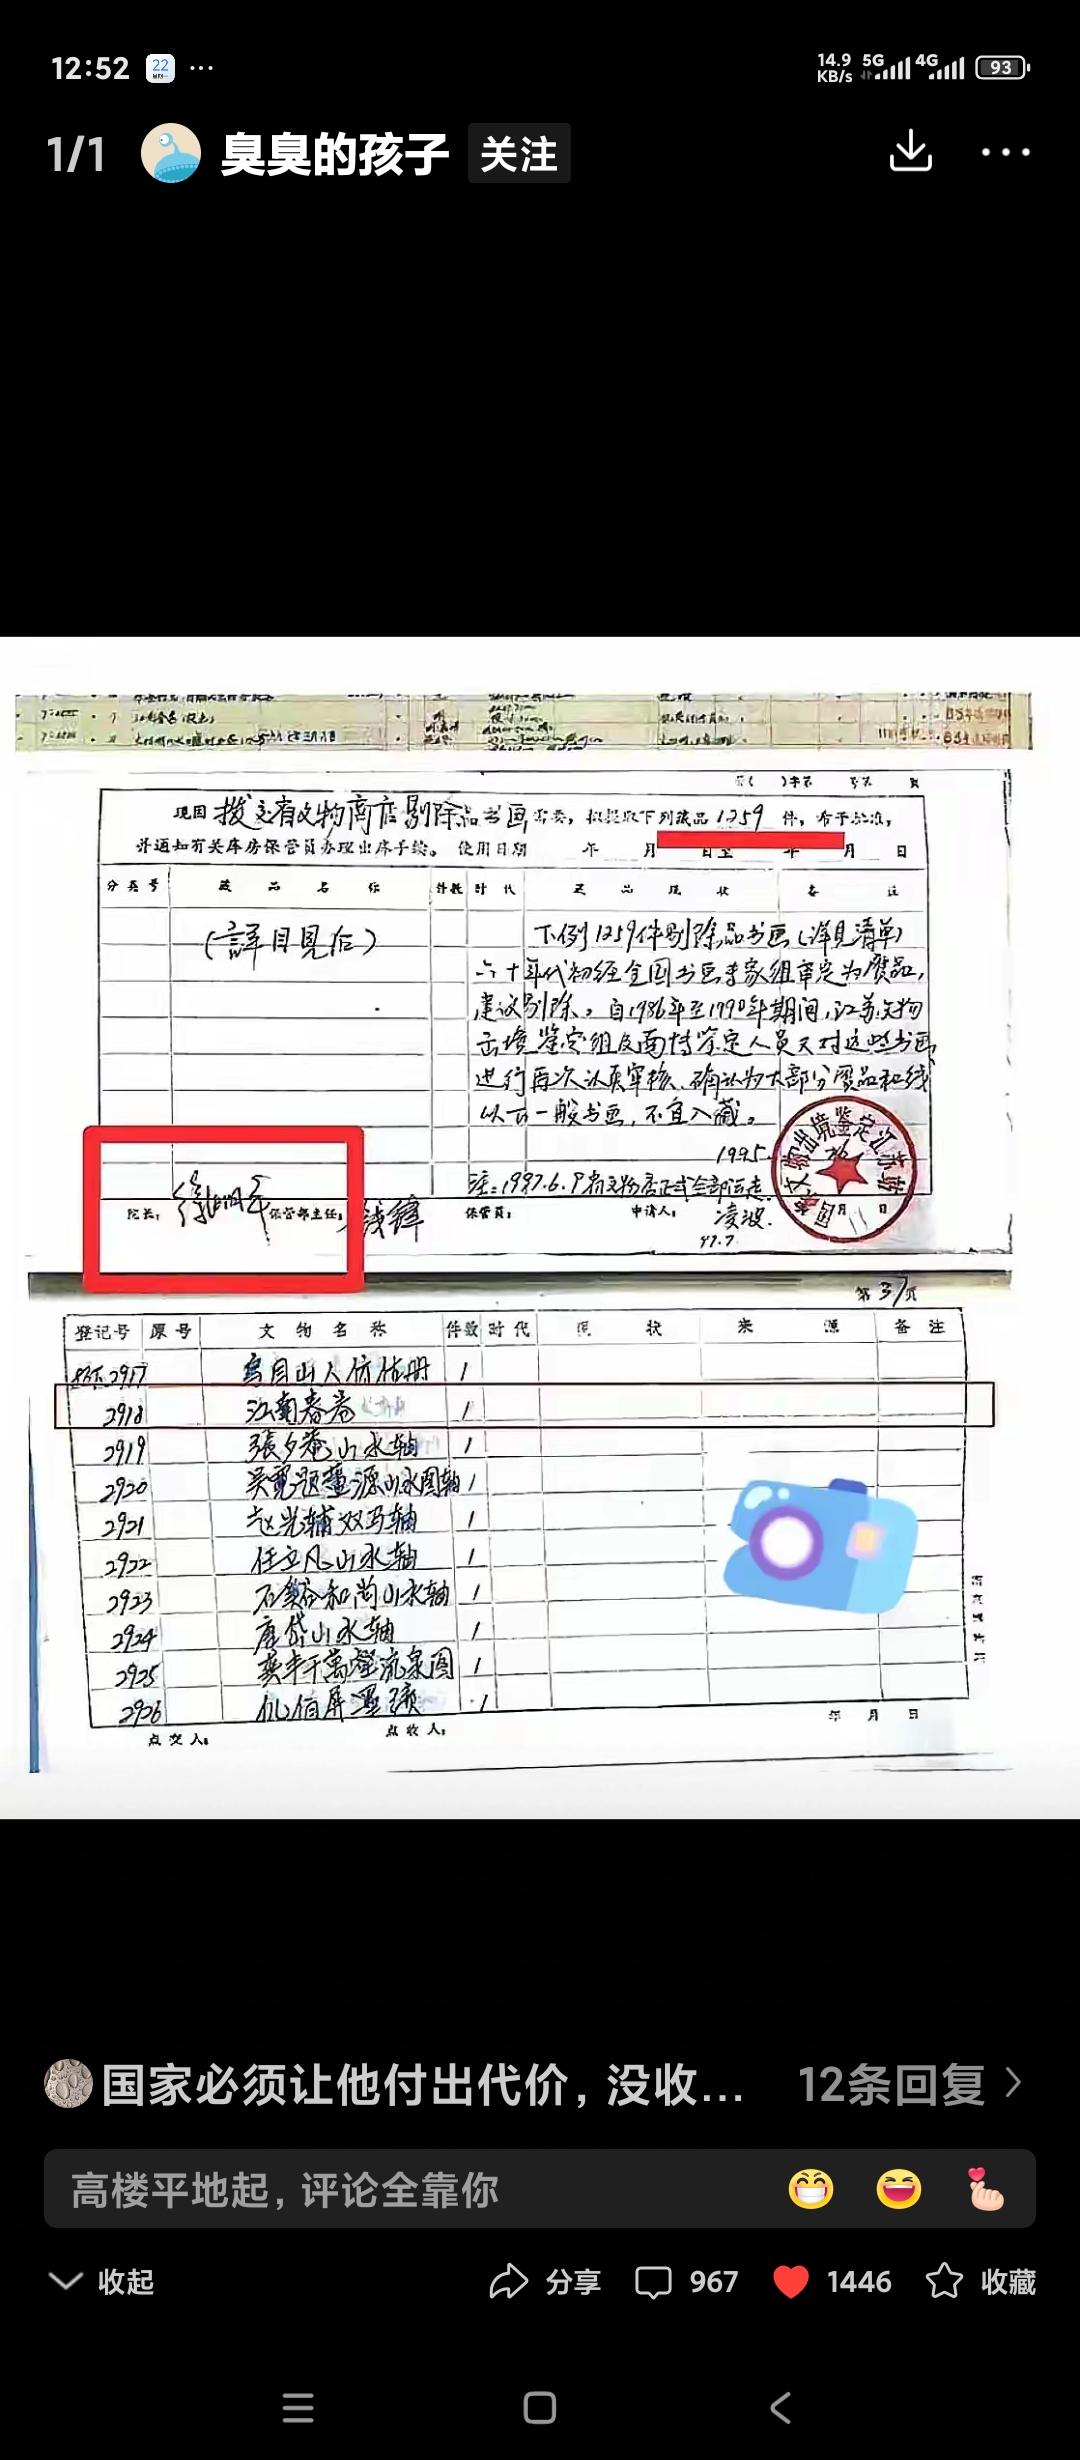 12:52
22
14.9
KB/s
5G
4G
93
1/1
臭臭的孩子
关注
现因 拨交省文物商店剔除品书画 需要，拟提取下列藏品 1259 件，希予批准，
并通知有关库房保管员办理出库手续。 使用日期 年 月 日至 年 月 日
分类号 藏品名称 件数 时代 藏品现状 备注
(詳目見后)
下列1259件剔除品书画(详见清单)
六十年代初经全国书画专家组审定为赝品，
建议剔除。自1986年至1990年期间，江苏文物
出境鉴定组及两博鉴定人员又对这些书画
进行再次认真审核、确认为大部分赝品和线
以下一般书画，不宜入藏。
1995.
注：1997.6.9
院长：
保管部主任：
钱锋
保管员：
申请人：
凌波.
97.7.
第 37 页
登记号 原号 文物名称 件数 时代 现状 来源 备注
2917 烏目山人 册 1
2918 江南春卷 1
2919 張夕菴山水轴 1
2920 吴寬题董源山水图轴 1
2921 赵光辅双马轴 1
2922 任立凡山水轴 1
2923 石谿和尚山水轴 1
2924 唐岱山水轴 1
2925 龚半千萬壑流泉图 1
2926 1
年 月 日
点交人：
点收人：
国家必须让他付出代价，没收...
12条回复
高楼平地起，评论全靠你
收起
分享
967
1446
收藏